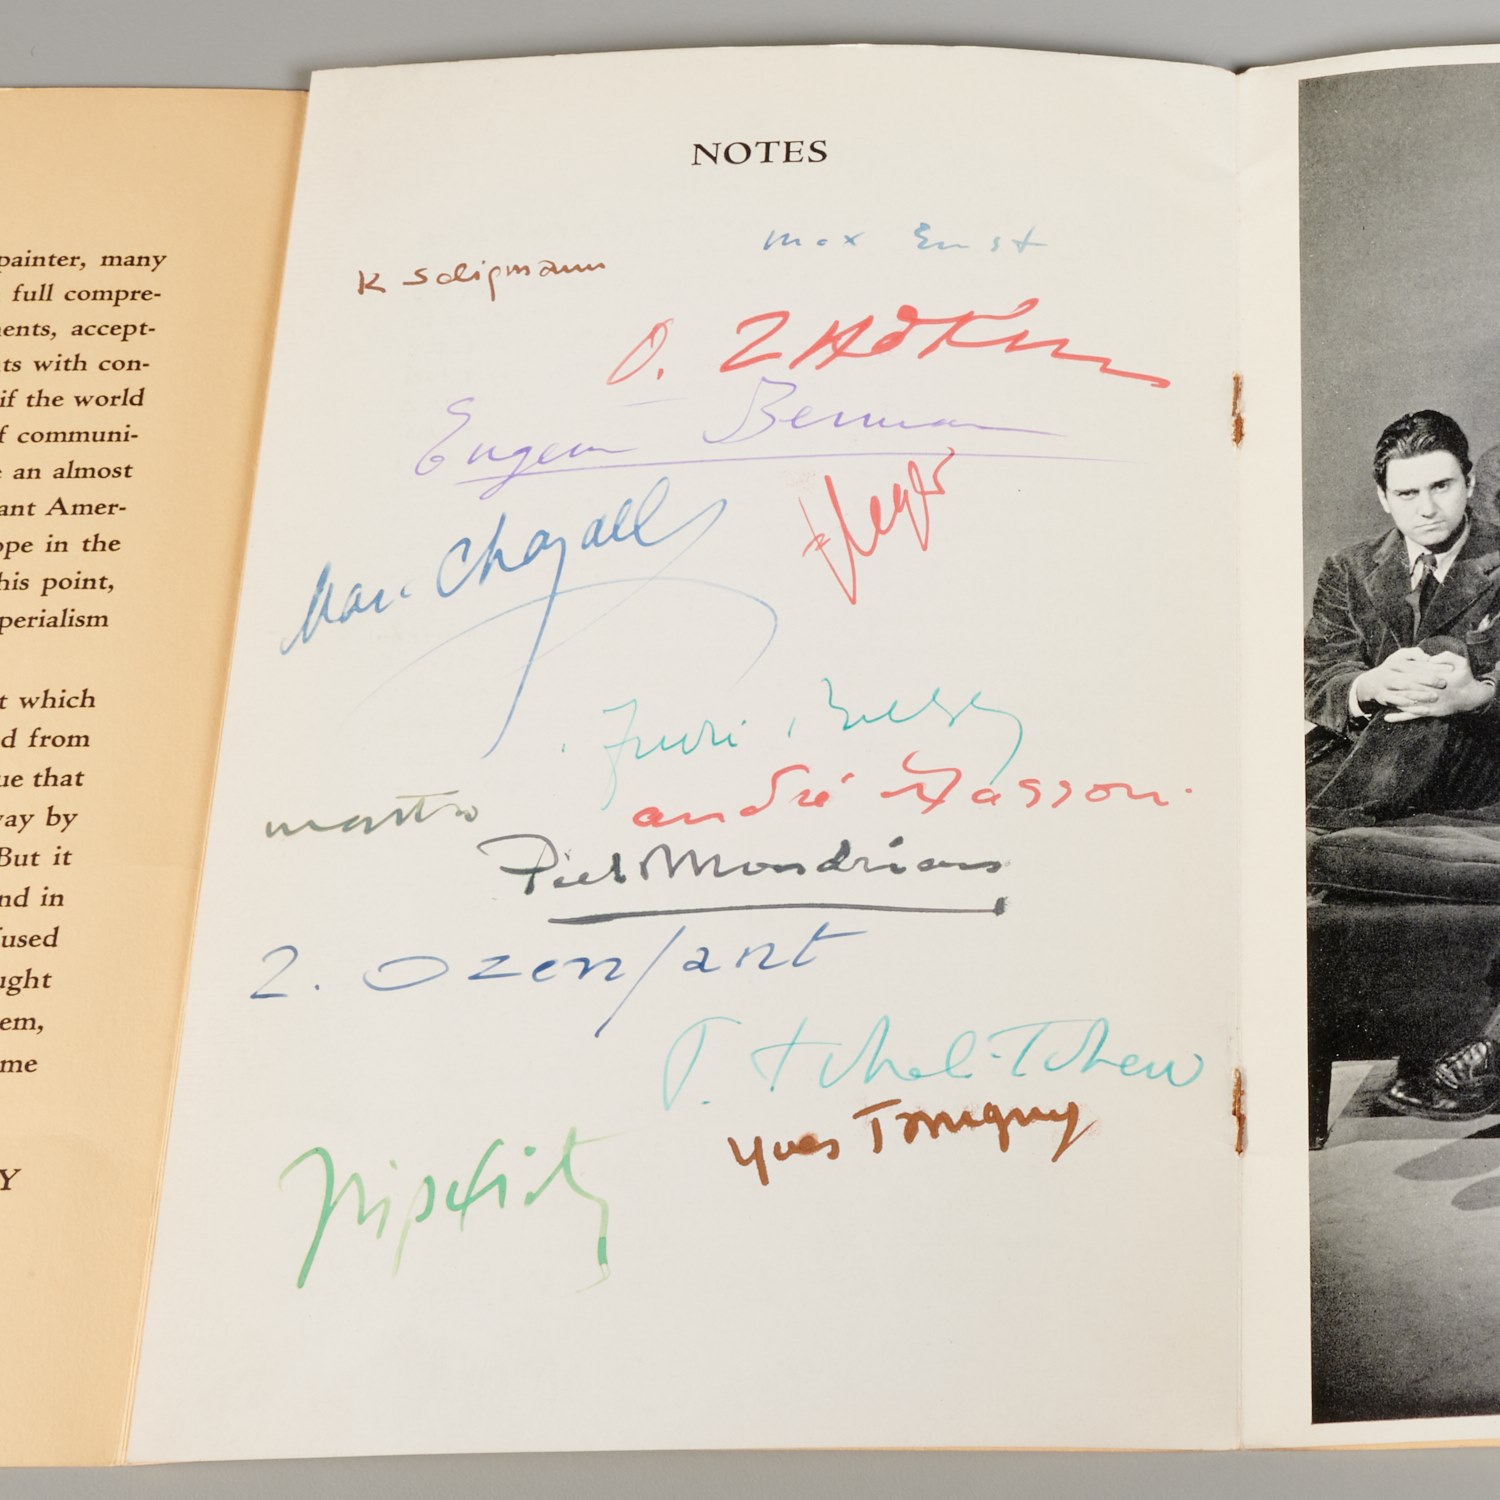 painter, many
full compre-
ents, accept-
ts with con-
if the world
f communi-
an almost
ant Amer-
ope in the
his point,
perialism
t which
d from
ue that
ay by
But it
nd in
used
ught
em,
me
Y
NOTES
max Ernst
K Seligmann
O. ZAdKine
Eugene Berman
Marc Chagall
f leger
andré Masson.
Piet Mondrian
a. ozenfant
P. tchelitchew
yves Tanguy